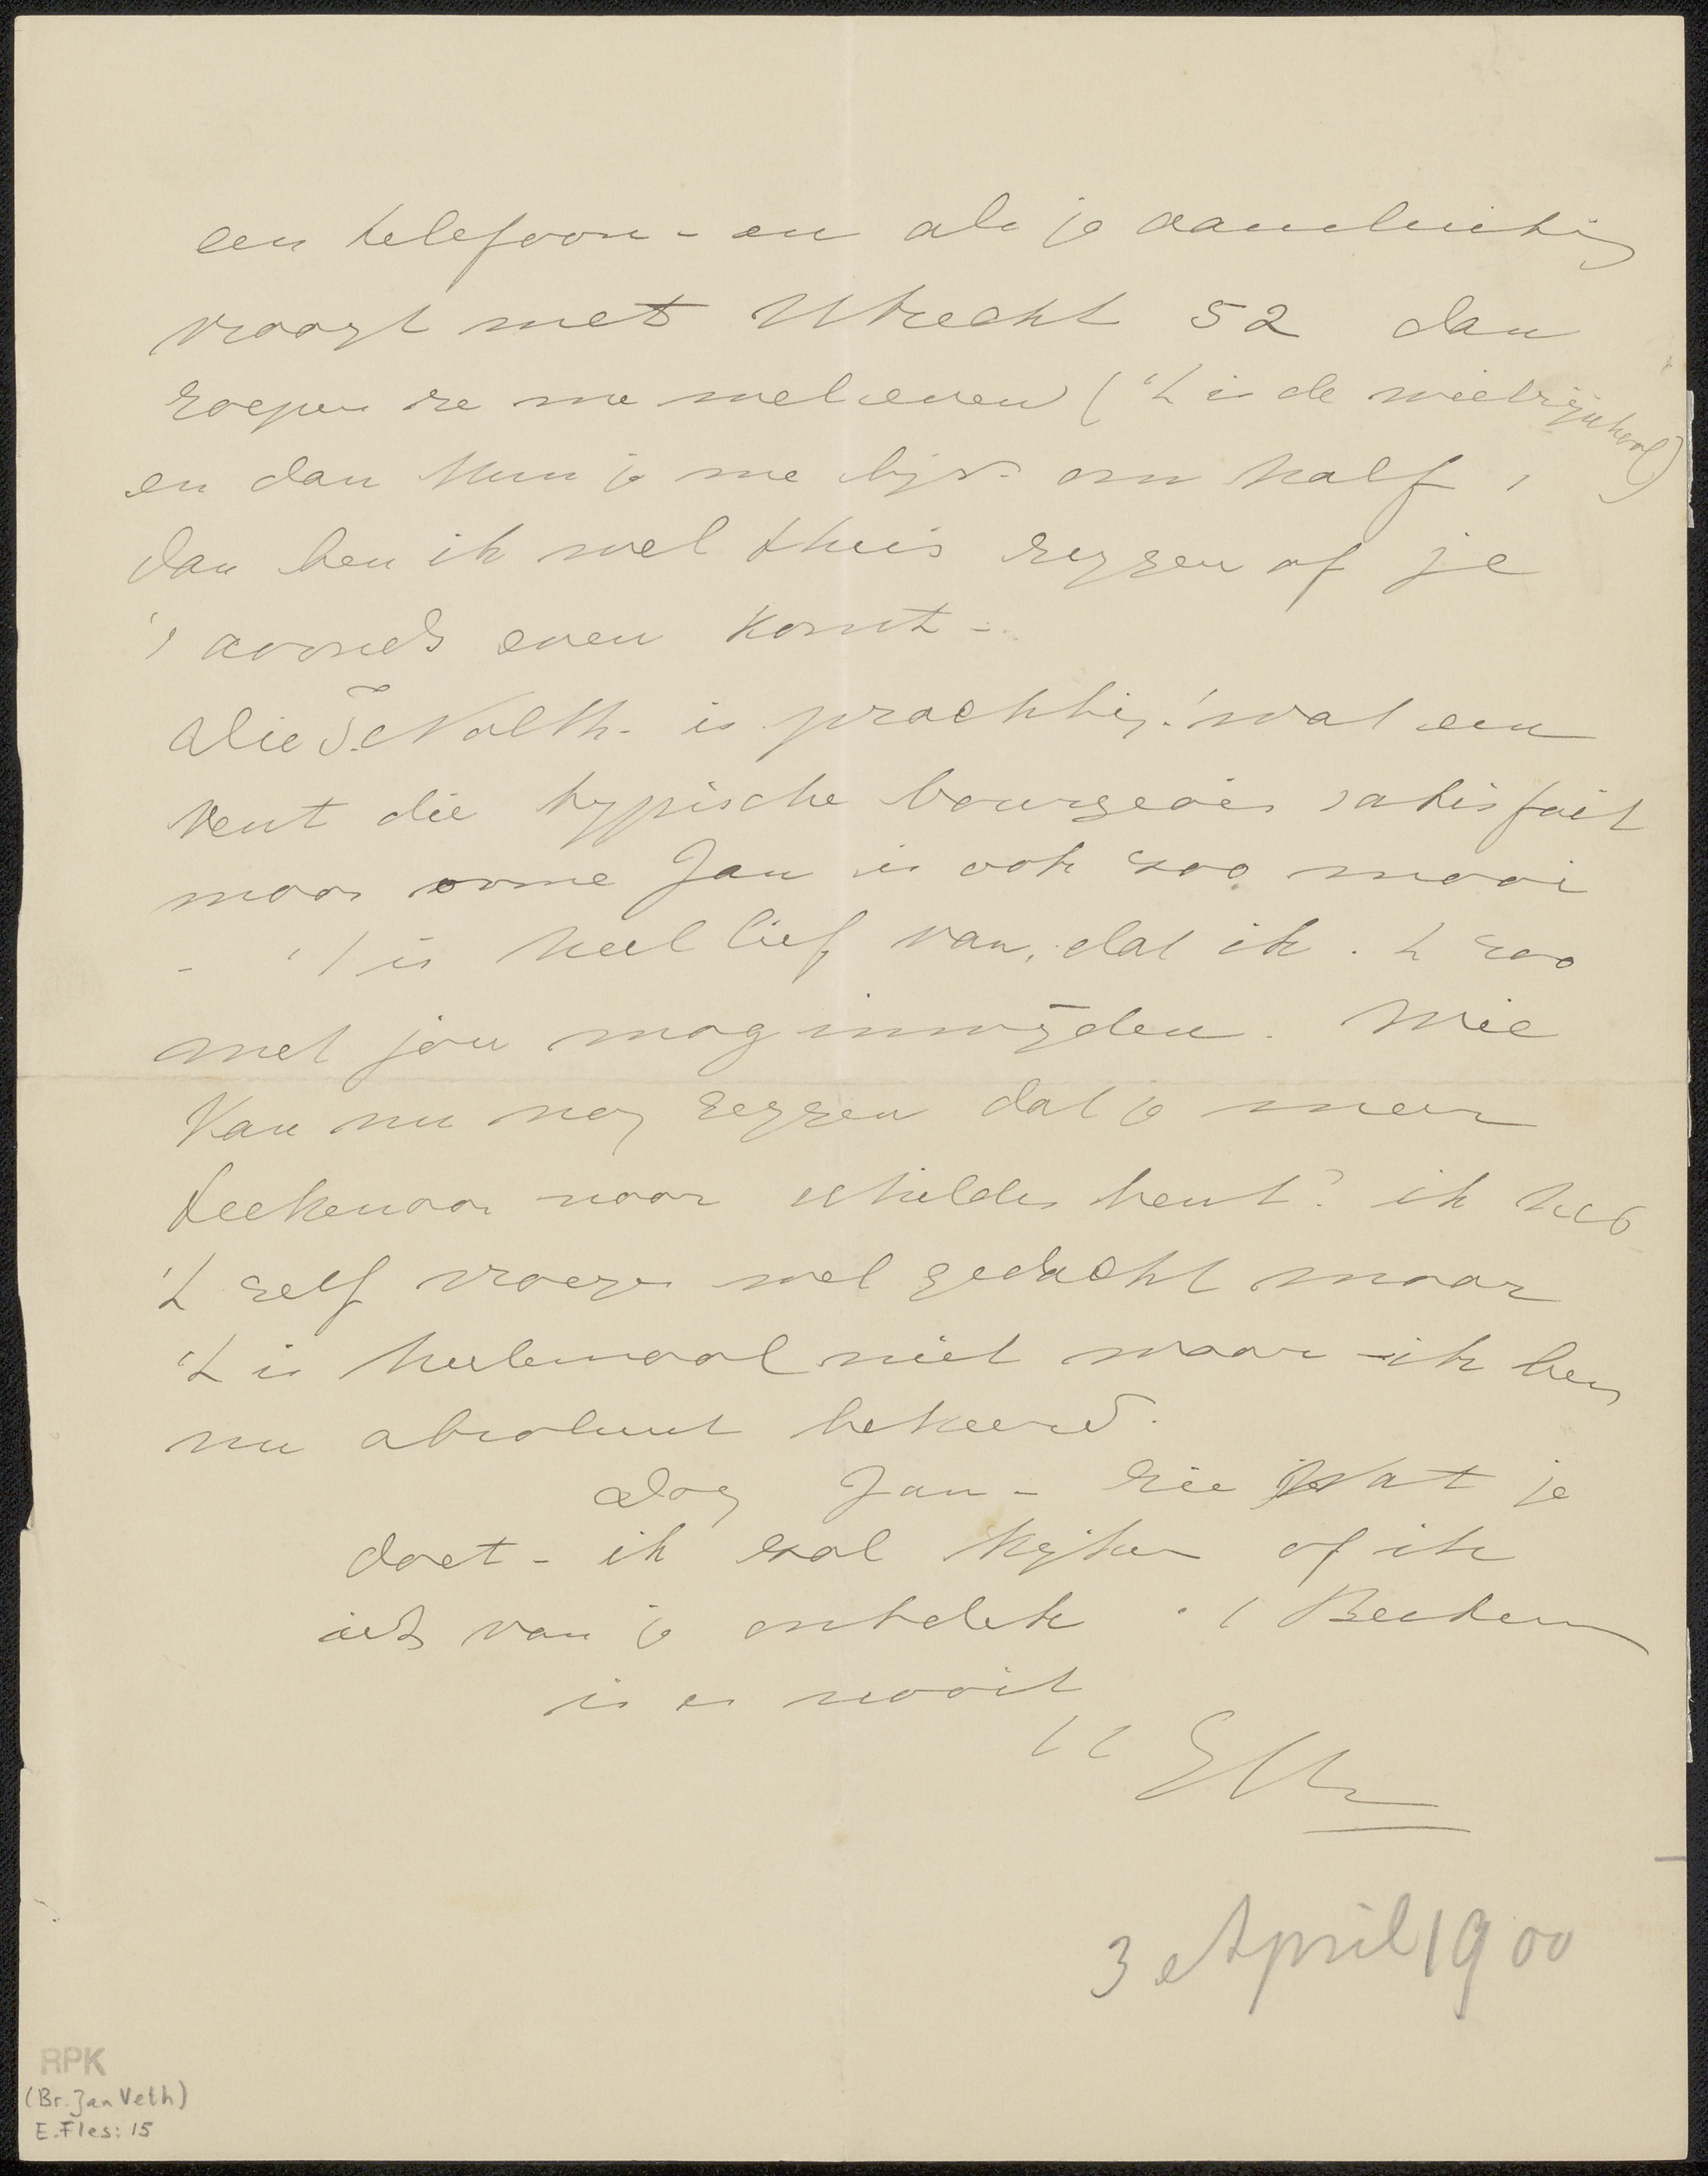 een telefoon - en als je aansluiting
vraagt met Utrecht 52 dan
roepen ze me wel even ('t is de wielrijschool)
en dan kun je me bijv. om half 1
dan ben ik wel thuis zeggen of je
's avonds even komt -
Die is prachtig! wat een
vent die typische bourgeois satisfait
maar oome Jan is ook zoo mooi
- 't is heel lief van, dat ik 't zoo
met jou mag inwijden. Wie
kan nu nog zeggen dat je meer
teekenaar naar schilder bent? ik heb
't zelf vroeger wel gedacht maar
't is heelemaal niet waar - ik ben
nu absoluut bekeerd.
Dag Jan - zie wat je
doet - ik zal kijken of ik
iets van je ontdek
is er nooit
tt
3 April 1900
RPK
(Br. Jan Veth)
E. Fles: 15